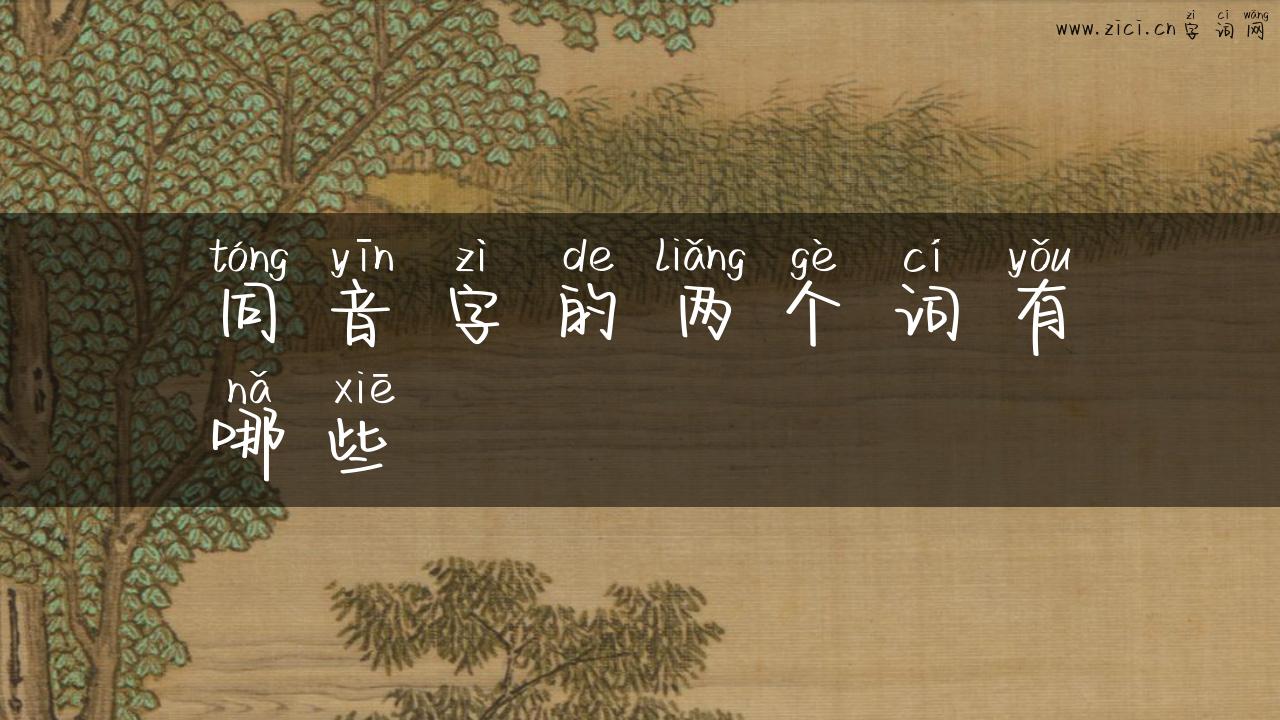 zì cí wǎng
www.zici.cn 字词网
tóng yīn zì de liǎng gè cí yǒu
同音字的两个词有
nǎ xiē
哪些